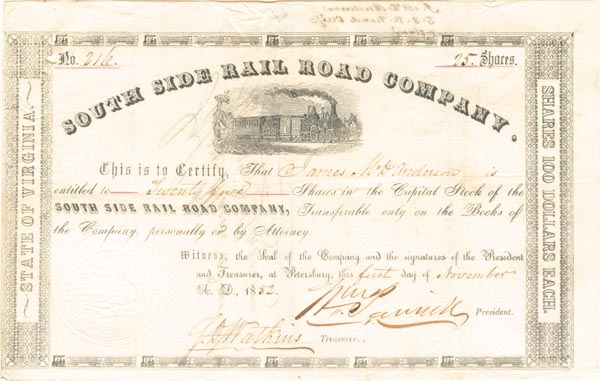 No. 216.
25. Shares.
SOUTH SIDE RAIL ROAD COMPANY.
STATE OF VIRGINIA.
SHARES 100 DOLLARS EACH.
This is to Certify, That James Anderson is
entitled to Twenty five Shares in the Capital Stock of the
SOUTH SIDE RAIL ROAD COMPANY, Transferable only on the Books of
the Company, personally or by Attorney.
Witness; the Seal of the Company and the signatures of the President
and Treasurer, at Petersburg, this first day of November
A. D., 1852.
President.
Watkins Treasurer.